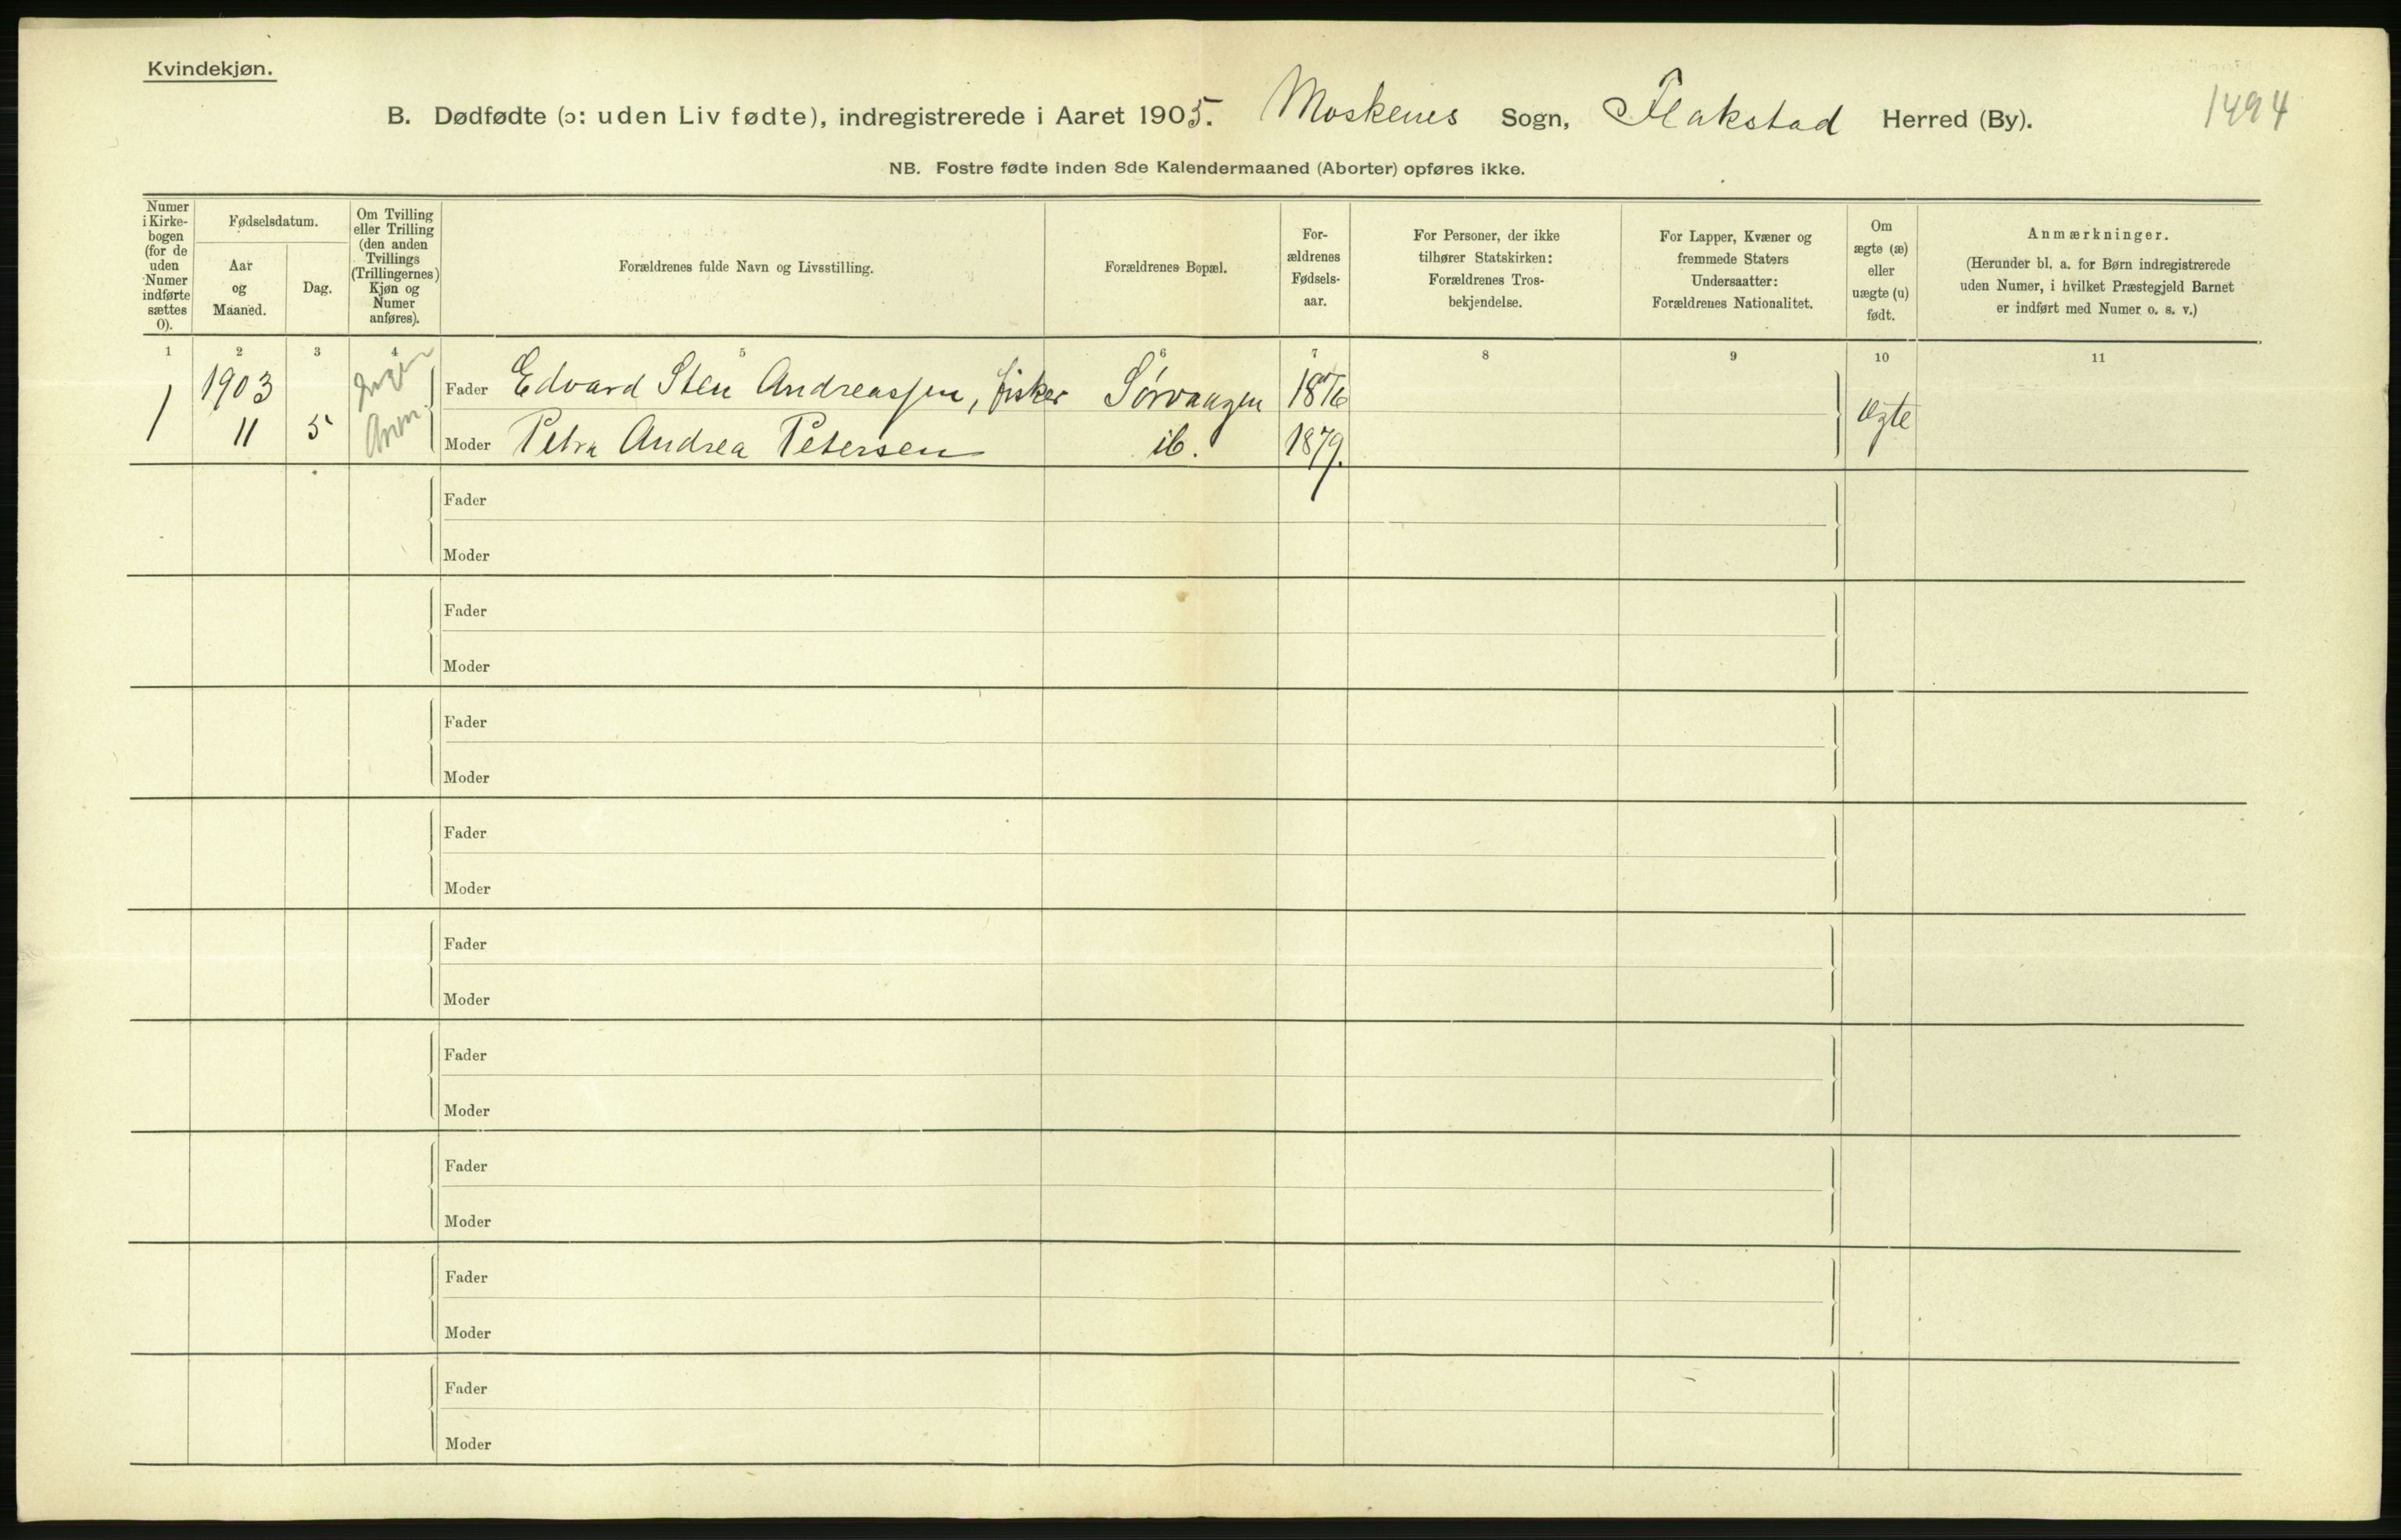 Kvindekjøn.
B. Dødfødte (ɔ: uden Liv fødte), indregistrerede i Aaret 1905. Moskenes Sogn, Flakstad Herred (By).
1494
NB. Fostre fødte inden 8de Kalendermaaned (Aborter) opføres ikke.
Numer
i Kirke-
bogen
(for de
uden
Numer
indførte
sættes
0).
Fødselsdatum.
Aar
og
Maaned.
Dag.
Om Tvilling
eller Trilling
(den anden
Tvillings
(Trillingernes)
Kjøn og
Numer
anføres).
Forældrenes fulde Navn og Livsstilling.
Forældrenes Bopæl.
For-
ældrenes
Fødsels-
aar.
For Personer, der ikke
tilhører Statskirken:
Forældrenes Tros-
bekjendelse.
For Lapper, Kvæner og
fremmede Staters
Undersaatter:
Forældrenes Nationalitet.
Om
ægte (æ)
eller
uægte (u)
født.
Anmærkninger.
(Herunder bl. a. for Børn indregistrerede
uden Numer, i hvilket Præstegjeld Barnet
er indført med Numer o. s. v.)
1 2 3 4 5 6 7 8 9 10 11
1903 Ingen Fader Edvard Sten Andreassen, fisker Sørvaagen 1876
1 11 5 Anm Moder Petra Andrea Petersen ib. 1879. Ægte
Fader
Moder
Fader
Moder
Fader
Moder
Fader
Moder
Fader
Moder
Fader
Moder
Fader
Moder
Fader
Moder
Fader
Moder